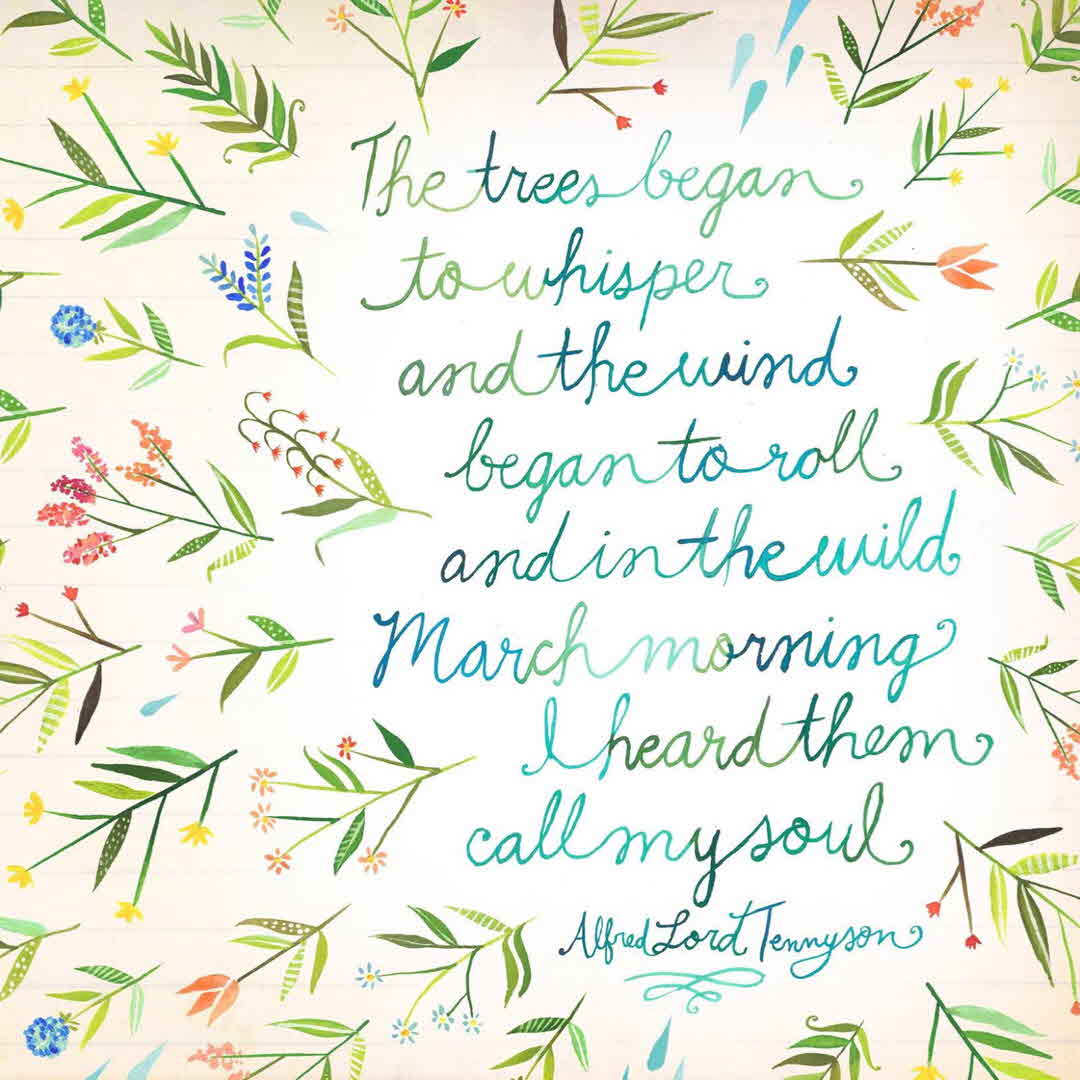 The trees began
to whisper
and the wind
began to roll
and in the wild
March morning
I heard them
call my soul
Alfred Lord Tennyson